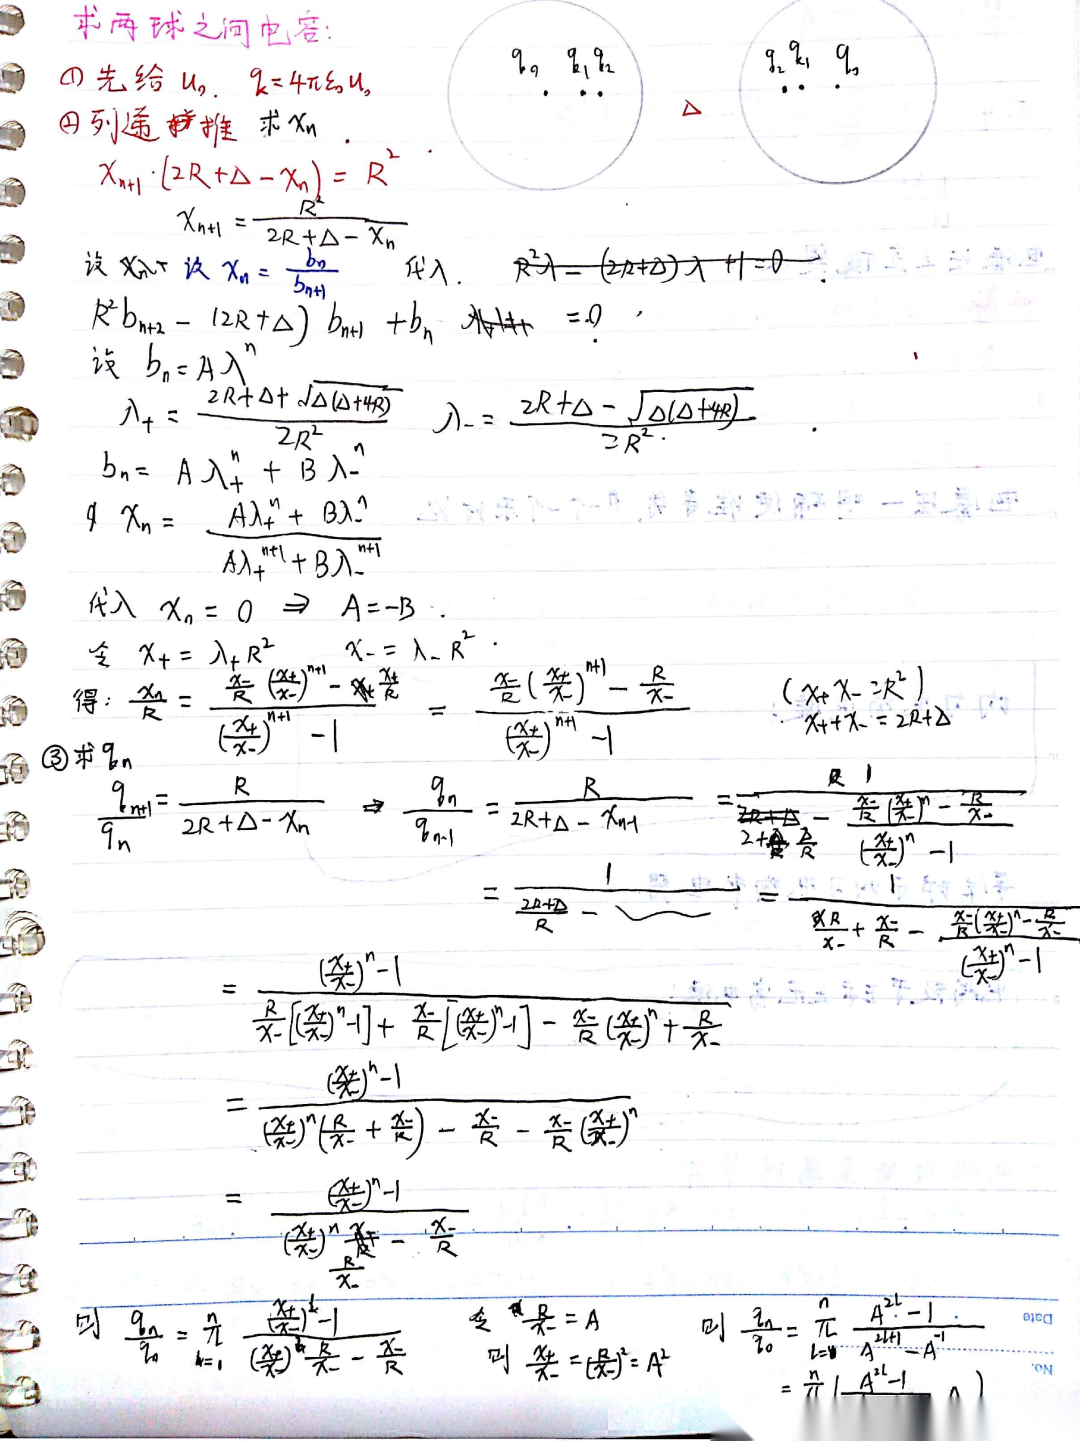 求两球之间电容:
① 先给 u₀. q₀=4πε₀u₀
q₀ q₁ q₂
q₂ q₁ q₀
Δ
② 列递推 求 xₙ.
xₙ₊₁·(2R+Δ-xₙ) = R²
xₙ₊₁ = R²/(2R+Δ-xₙ)
设 xₙ = bₙ/bₙ₊₁ 代入. R²λ-(2R+Δ)λ+1=0
R²bₙ₊₂ - (2R+Δ) bₙ₊₁ + bₙ = 0
设 bₙ = Aλⁿ
λ₊ = (2R+Δ+√(Δ(Δ+4R)))/(2R²) λ₋ = (2R+Δ-√(Δ(Δ+4R)))/(2R²).
bₙ = Aλ₊ⁿ + Bλ₋ⁿ
则 xₙ = (Aλ₊ⁿ + Bλ₋ⁿ)/(Aλ₊ⁿ⁺¹ + Bλ₋ⁿ⁺¹)
代入 xₙ = 0 ⇒ A = -B.
令 x₊ = λ₊R² x₋ = λ₋R².
得: xₙ/R = (x₋/R (x₊/x₋)ⁿ⁺¹ - x₊/R)/((x₊/x₋)ⁿ⁺¹ - 1) = (x₋/R (x₊/x₋)ⁿ⁺¹ - R/x₋)/((x₊/x₋)ⁿ⁺¹ - 1) (x₊x₋=R²)
x₊+x₋=2R+Δ
③ 求 qₙ
qₙ₊₁/qₙ = R/(2R+Δ-xₙ) ⇒ qₙ/qₙ₋₁ = R/(2R+Δ-xₙ₋₁) = 1/(2+Δ/R - (x₋/R (x₊/x₋)ⁿ - R/x₋)/((x₊/x₋)ⁿ - 1))
= 1/((2R+Δ)/R - ~) = 1/(R/x₋ + x₋/R - (x₋/R (x₊/x₋)ⁿ - R/x₋)/((x₊/x₋)ⁿ - 1))
= ((x₊/x₋)ⁿ - 1)/(R/x₋[(x₊/x₋)ⁿ-1] + x₋/R[(x₊/x₋)ⁿ-1] - x₋/R(x₊/x₋)ⁿ + R/x₋)
= ((x₊/x₋)ⁿ - 1)/((x₊/x₋)ⁿ(R/x₋ + x₋/R) - x₋/R - x₋/R(x₊/x₋)ⁿ)
= ((x₊/x₋)ⁿ - 1)/((x₊/x₋)ⁿ R/x₋ - x₋/R)
则 qₙ/q₀ = π(k=1, n) ((x₊/x₋)ᵏ - 1)/((x₊/x₋)ᵏ R/x₋ - x₋/R) 令 R/x₋ = A 则 qₙ/q₀ = π(n) (A²ᶫ - 1)/(A²ᶫ⁺¹ - A⁻¹)
则 x₊/x₋ = (R/x₋)² = A²
= π(n) (A²ᶫ - 1
Date
No.